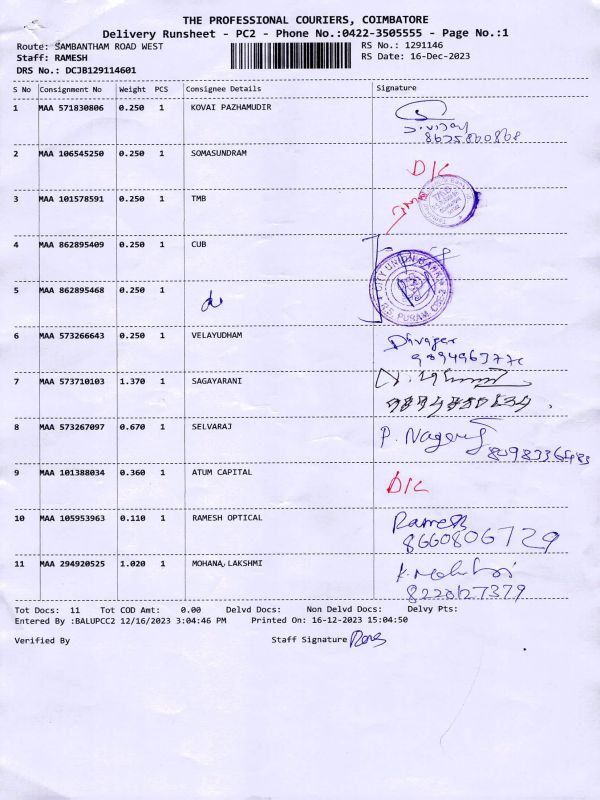 THE PROFESSIONAL COURIERS, COIMBATORE
Delivery Runsheet - PC2 - Phone No.:0422-3505555 - Page No.:1
Route: SAMBANTHAM ROAD WEST RS No.: 1291146
Staff: RAMESH RS Date: 16-Dec-2023
DRS No.: DCJB129114601
S No Consignment No Weight PCS Consignee Details Signature
1 MAA 571830806 0.250 1 KOVAI PAZHAMUDIR
2 MAA 106545250 0.250 1 SOMASUNDRAM D/L
3 MAA 101578591 0.250 1 TMB
4 MAA 862895409 0.250 1 CUB
CITY UNION BANK
R.S. PURAM, CBE-2
5 MAA 862895468 0.250 1 do
6 MAA 573266643 0.250 1 VELAYUDHAM
7 MAA 573710103 1.370 1 SAGAYARANI
8 MAA 573267097 0.670 1 SELVARAJ P. Nagaraj
9 MAA 101388034 0.360 1 ATUM CAPITAL D/L
10 MAA 105953963 0.110 1 RAMESH OPTICAL Ramesh
8660806729
11 MAA 294920525 1.020 1 MOHANA LAKSHMI
8220127379
Tot Docs: 11 Tot COD Amt: 0.00 Delvd Docs: Non Delvd Docs: Delvy Pts:
Entered By :BALUPCC2 12/16/2023 3:04:46 PM Printed On: 16-12-2023 15:04:50
Verified By Staff Signature